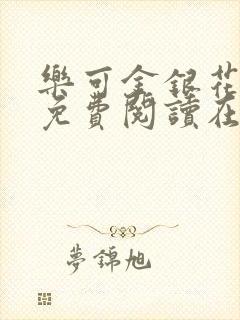 樂可金銀花
免費閱讀在
夢錦旭